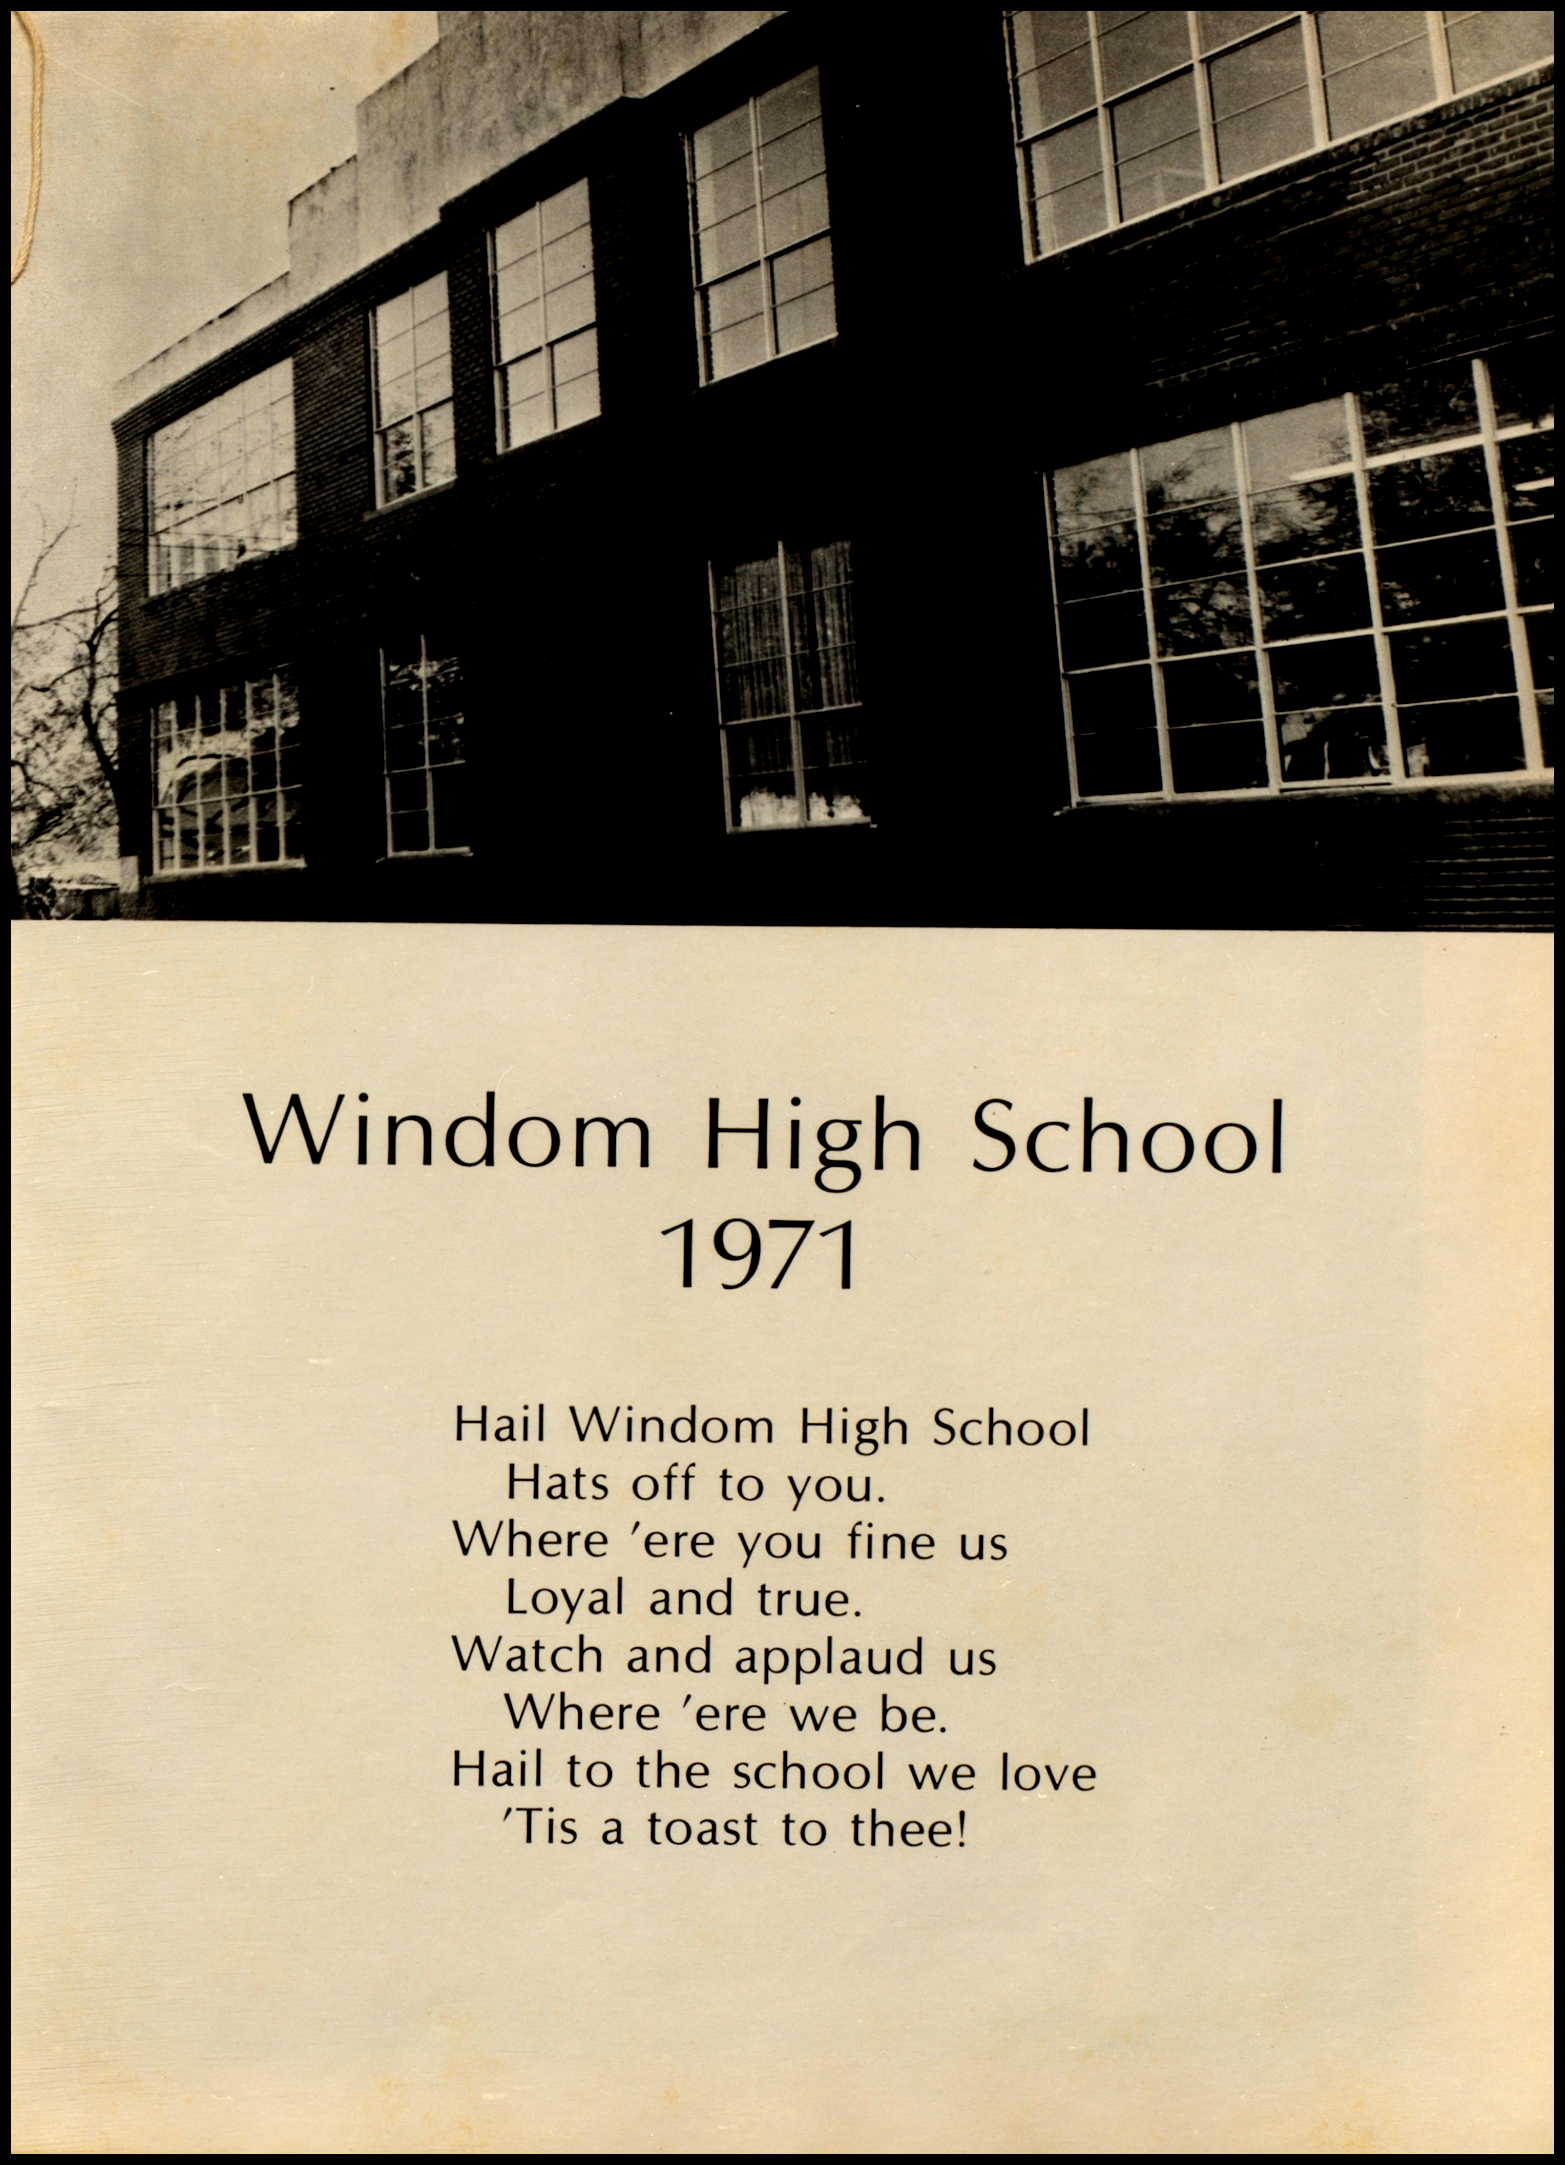 Windom High School
1971
Hail Windom High School
Hats off to you.
Where 'ere you fine us
Loyal and true.
Watch and applaud us
Where 'ere we be.
Hail to the school we love
'Tis a toast to thee!